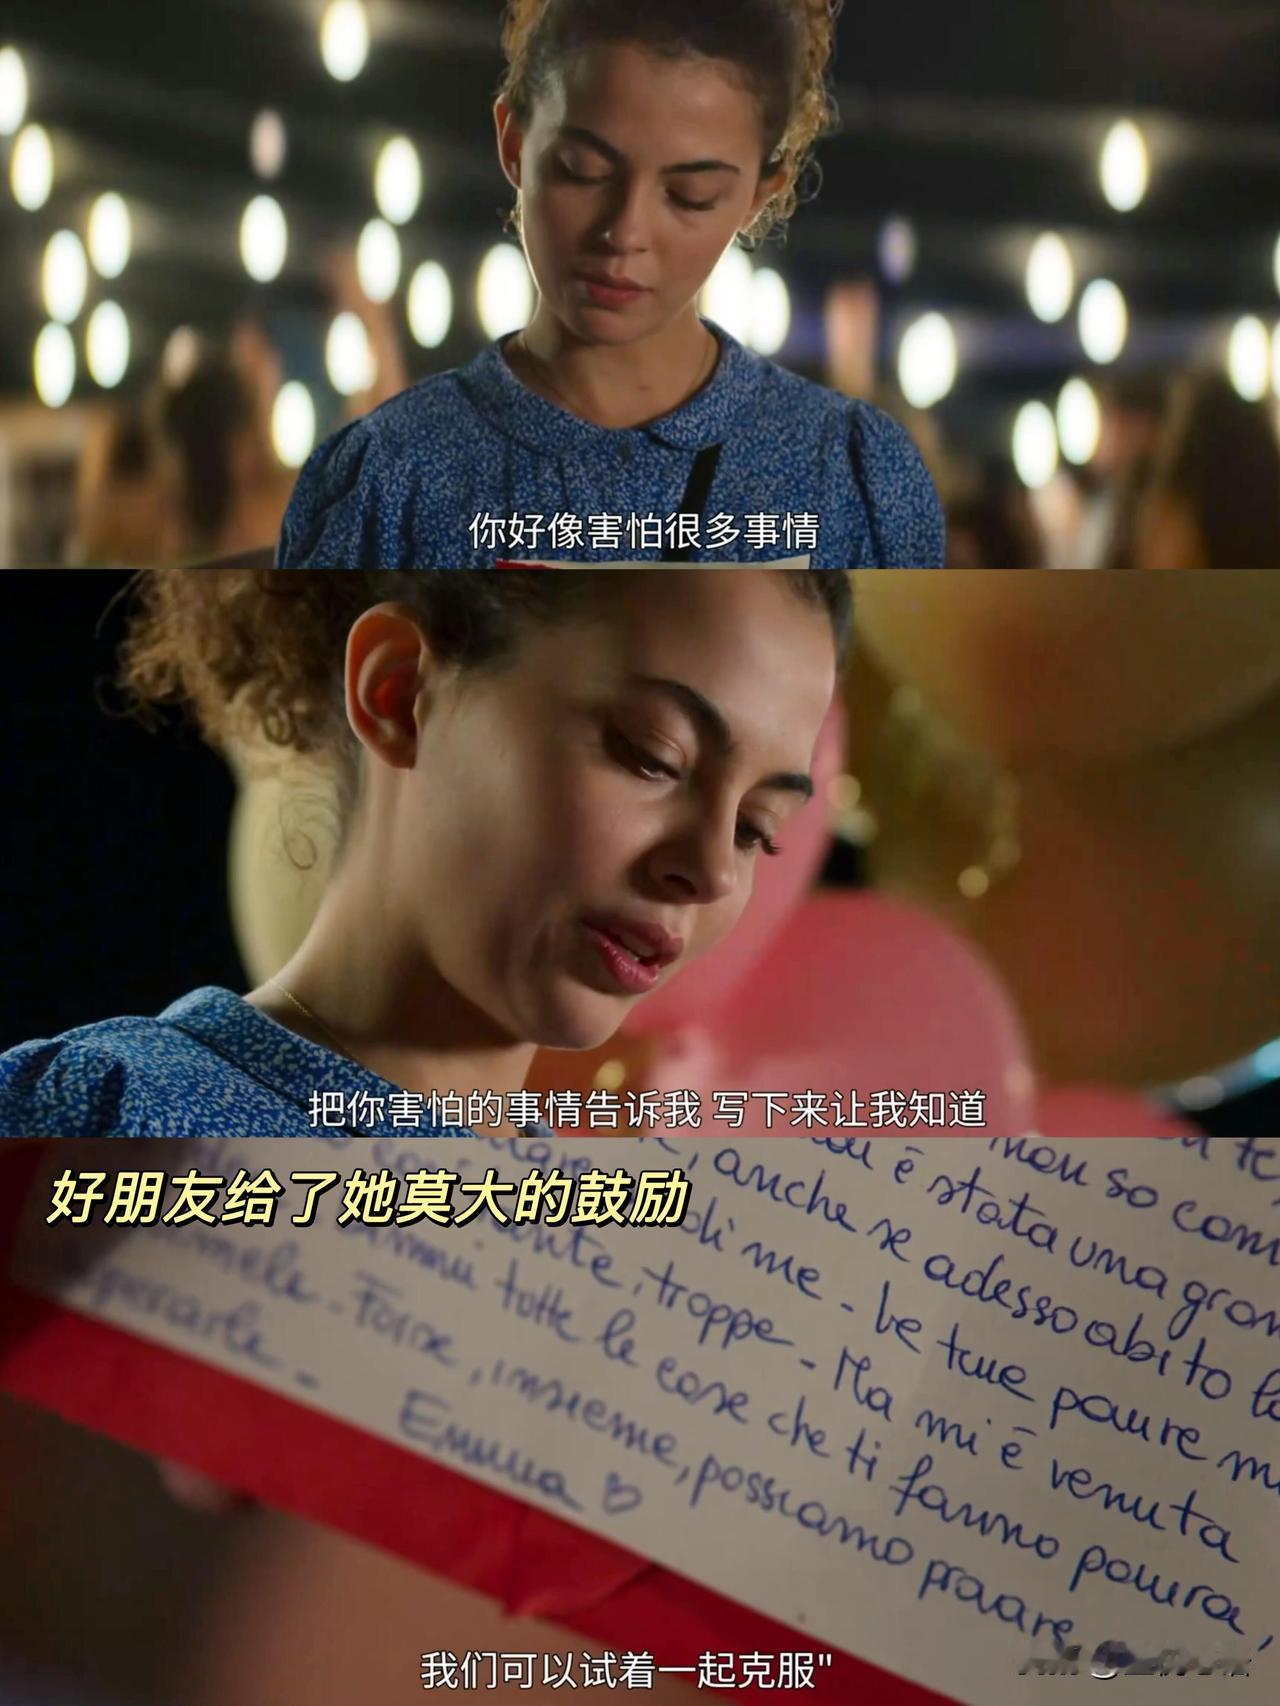 你好像害怕很多事情
把你害怕的事情告诉我 写下来让我知道
好朋友给了她莫大的鼓励
non so com
è stata una gran
, anche se adesso abito lo
di me - Le tue paure mi
ente, troppe - Ma mi è venuta
tutte le cose che ti fanno paura,
- Forse, insieme, possiamo provare
- Emma
我们可以试着一起克服"